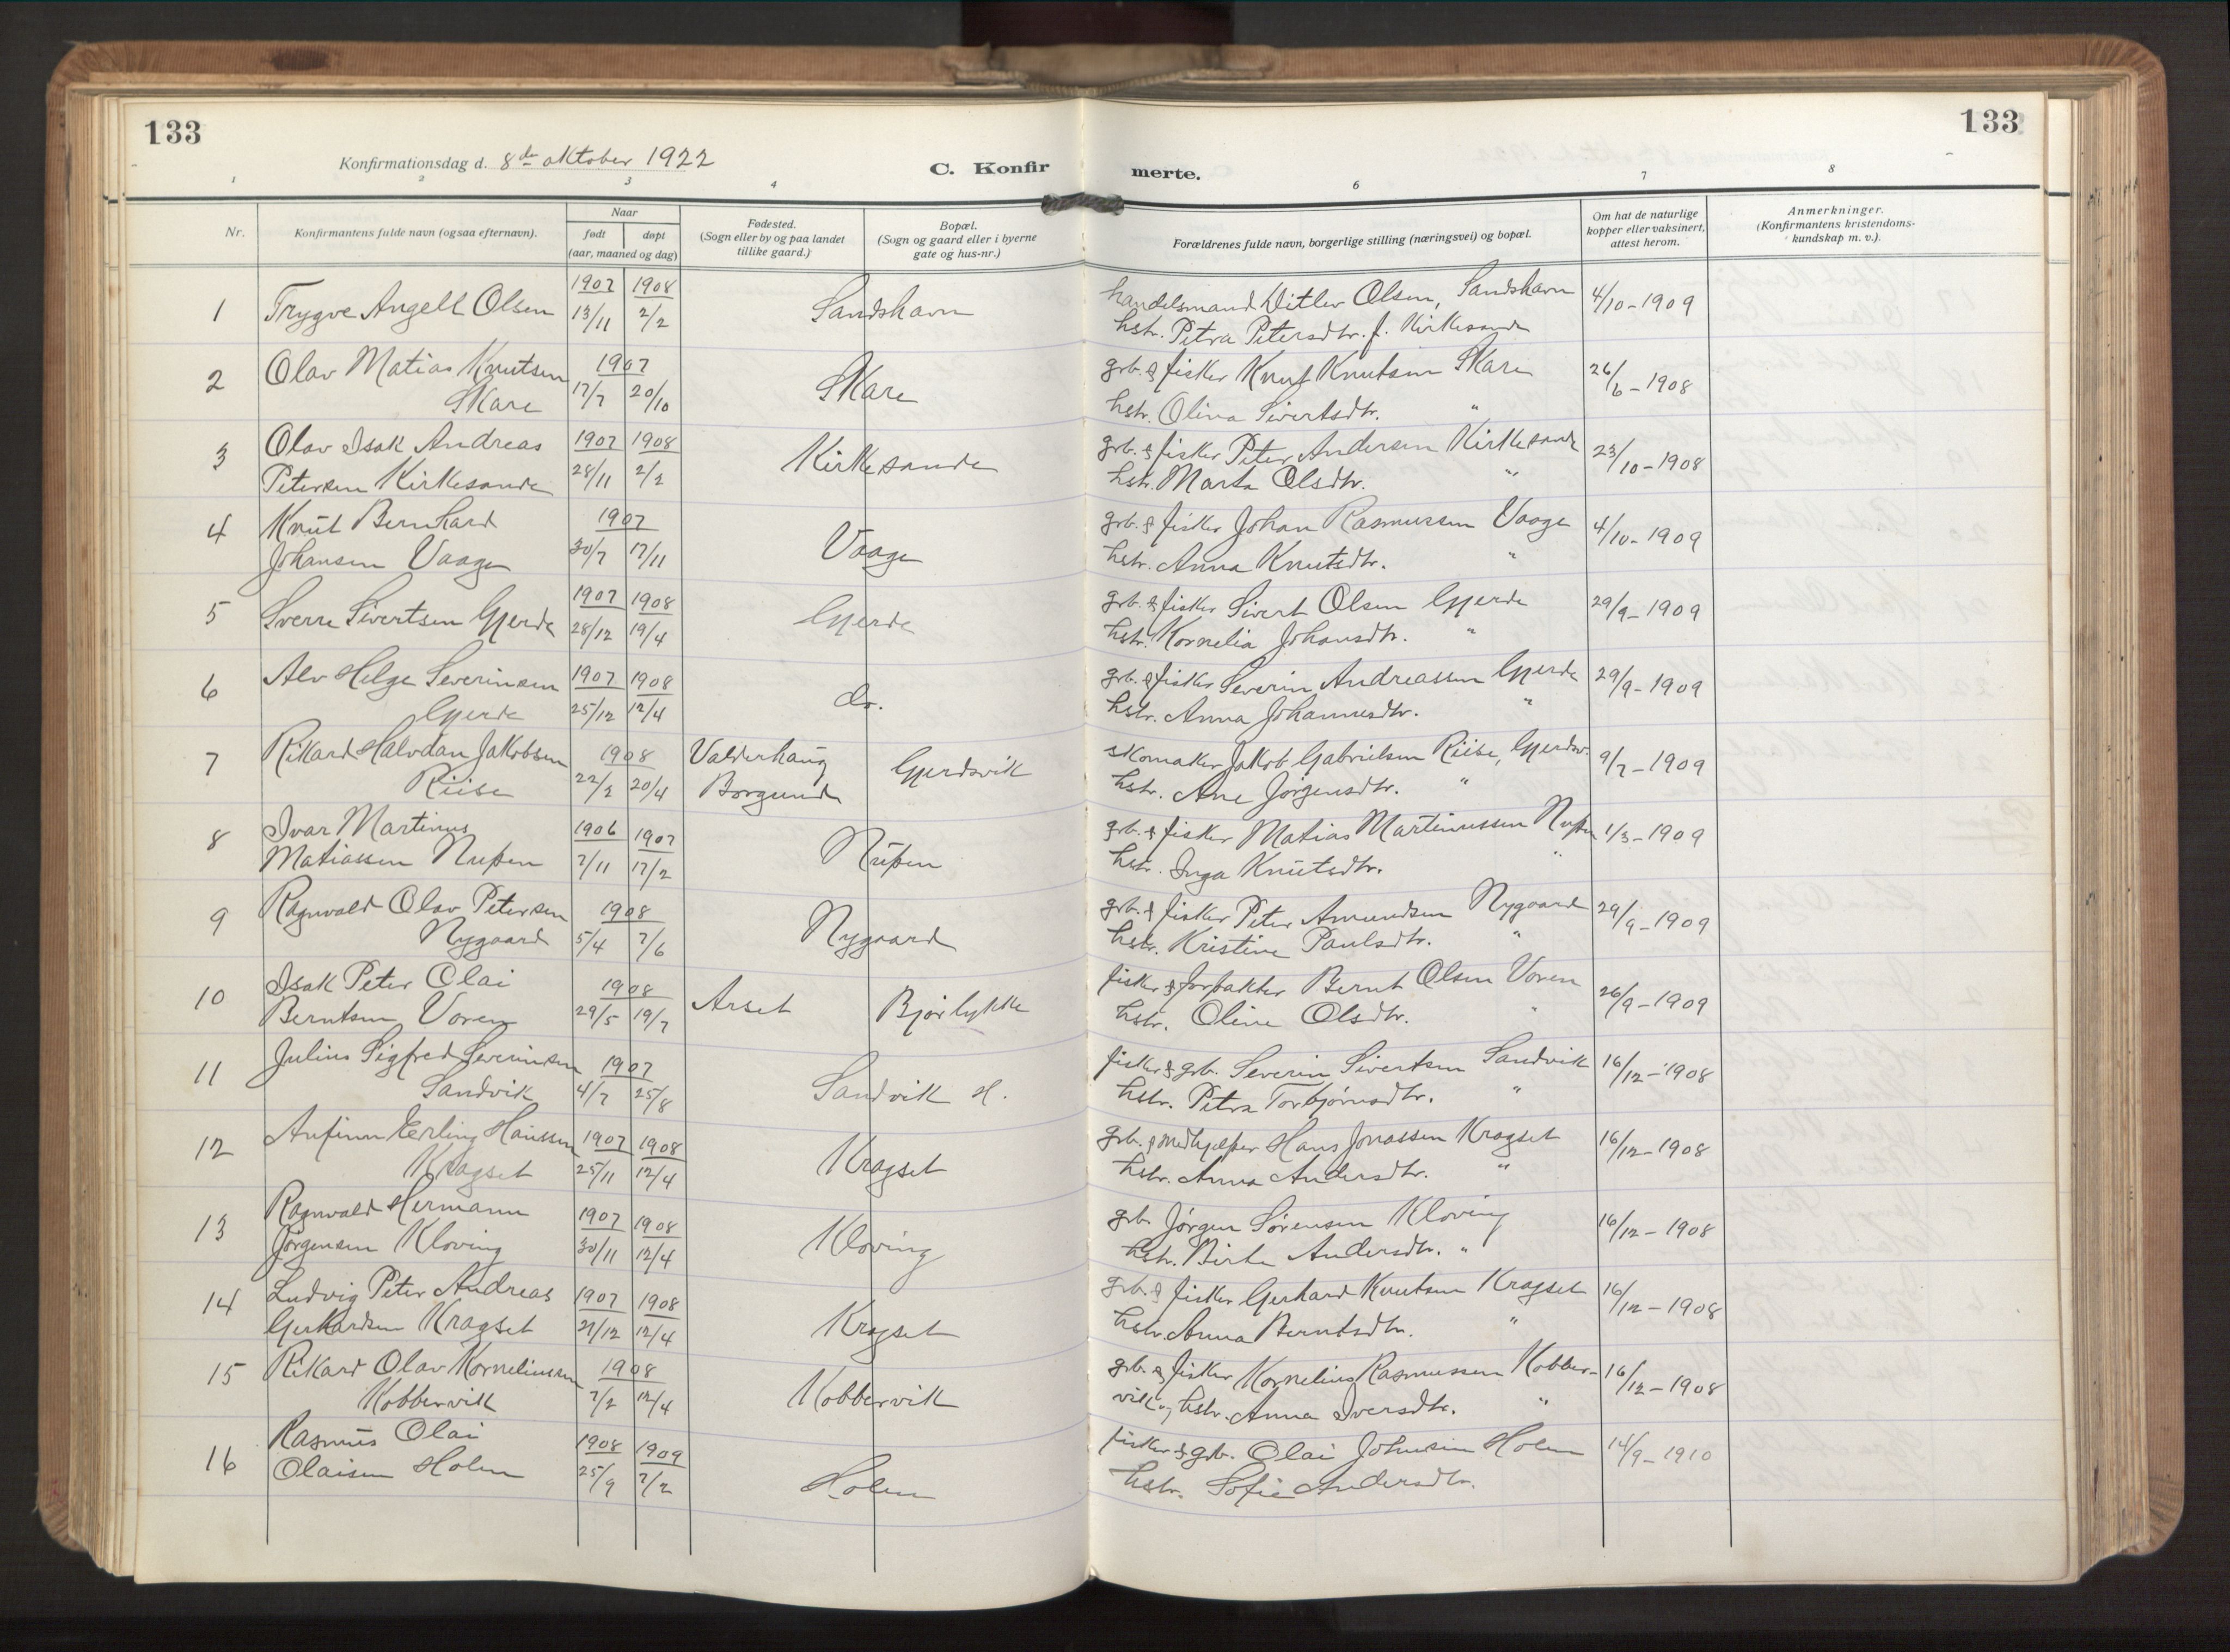 133
133
Konfirmationsdag d. 8de oktober 1922
C. Konfir
merte.
1 2 3 4 6 7 8
Nr.
Konfirmantens fulde navn (ogsaa efternavn).
Naar
født døpt
(aar, maaned og dag)
Fødested.
(Sogn eller by og paa landet
tillike gaard.)
Bopæl.
(Sogn og gaard eller i byerne
gate og hus-nr.)
Forældrenes fulde navn, borgerlige stilling (næringsvei) og bopæl.
Om hat de naturlige
kopper eller vaksinert,
attest herom.
Anmerkninger.
(Konfirmantens kristendoms-
kundskap m. v.).
1 Trygve Angell Olsen 1907 13/11 1908 2/2 Sandshavn handelsmand Ditlev Olsen, Sandshavn 4/10-1909
hstr. Petra Petersdtr. f. Kirkesande
2 Olav Matias Knutsen 1907 grb. & fisker Knut Knutsen Skare 26/6-1908
Skare 17/7 20/10 Skare hstr. Olina Sivertsdtr. "
3 Olav Isak Andreas 1907 1908 Kirkesande grb. & fisker Peter Andersen Kirkesande 23/10-1908
Petersen Kirkesande 28/11 2/2 hstr. Marta Olsdtr. "
4 Knut Bernhard 1907 grb. & fisker Johan Rasmussen Vaage 4/10-1909
Johansen Vaage 30/7 17/11 Vaage hstr. Anna Knutsdtr. "
5 Sverre Sivertsen Gjerde 1907 28/12 1908 19/4 Gjerde grb. & fisker Sivert Olsen Gjerde 29/9-1909
hstr. Kornelia Johansdtr. "
6 Alv Helge Severinsen 1907 1908 grb. & fisker Severin Andreassen Gjerde 29/9-1909
Gjerde 25/12 12/4 do. hstr. Anna Johannesdtr. "
7 Rikard Halvdan Jakobsen 1908 Valderhaug Gjerdsvik skomaker Jakob Gabrielsen Riise, Gjerdsv. 9/7-1909
Riise 22/2 20/4 Borgund hstr. Ane Jørgensdtr. "
8 Ivar Martinus 1906 1907 grb. & fisker Matias Martinussen Nupen 1/3-1909
Matiassen Nupen 7/11 17/2 Nupen hstr. Inga Knutsdtr. "
9 Ragnvald Olav Petersen 1908 grb. & fisker Peter Amundsen Nygaard 29/9-1909
Nygaard 5/4 7/6 Nygaard hstr. Kristine Paulsdtr. "
10 Isak Peter Olai 1908 Arset Bjørlykke fisker & forpakter Bernt Olsen Voren 26/9-1909
Berntsen Voren 29/5 19/7 hstr. Oline Olsdtr. "
11 Julius Sigfred Severinsen 1907 fisker & grb. Severin Sivertsen Sandvik 16/12-1908
Sandvik 4/7 25/8 Sandvik H. hstr. Petra Torbjørnsdtr. "
12 Anfinn Erling Hanssen 1907 1908 grb. & medhjelper Hans Jonassen Kragset 16/12-1908
Kragset 25/11 12/4 Kragset hstr. Anna Andersdtr. "
13 Ragnvald Hermann 1907 1908 grb. Jørgen Sørensen Kloving 16/12-1908
Jørgensen Kloving 30/11 12/4 Kloving hstr. Birte Andersdtr. "
14 Ludvig Peter Andreas 1907 1908 grb. & fisker Gerhard Knutsen Kragset 16/12-1908
Gerhardsen Kragset 21/12 12/4 Kragset hstr. Anna Berntsdtr. "
15 Rikard Olav Korneliussen 1908 grb. & fisker Kornelius Rasmussen Kobber- 16/12-1908
Kobbervik 7/2 12/4 Kobbervik vik, hstr. Anna Iversdtr. "
16 Rasmus Olai 1908 1909 fisker & grb. Olai Johnsen Holen 14/9-1910
Olaisen Holen 25/9 7/2 Holen hstr. Sofie Andersdtr.